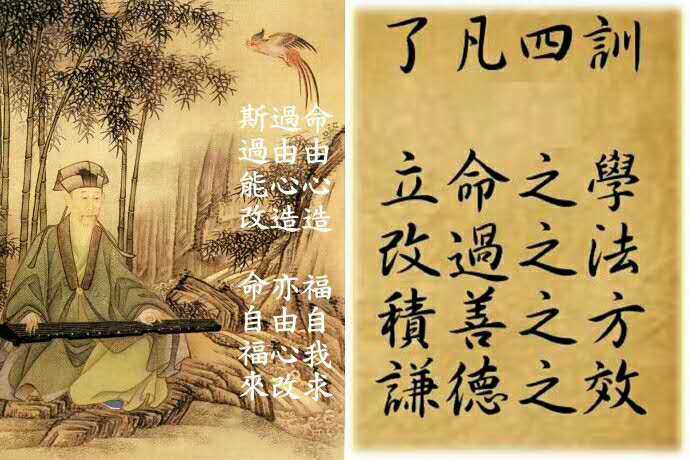 命由心造
福自我求
過由心造
亦由心改
斯過能改
命自福來
了凡四訓
立命之學
改過之法
積善之方
謙德之效